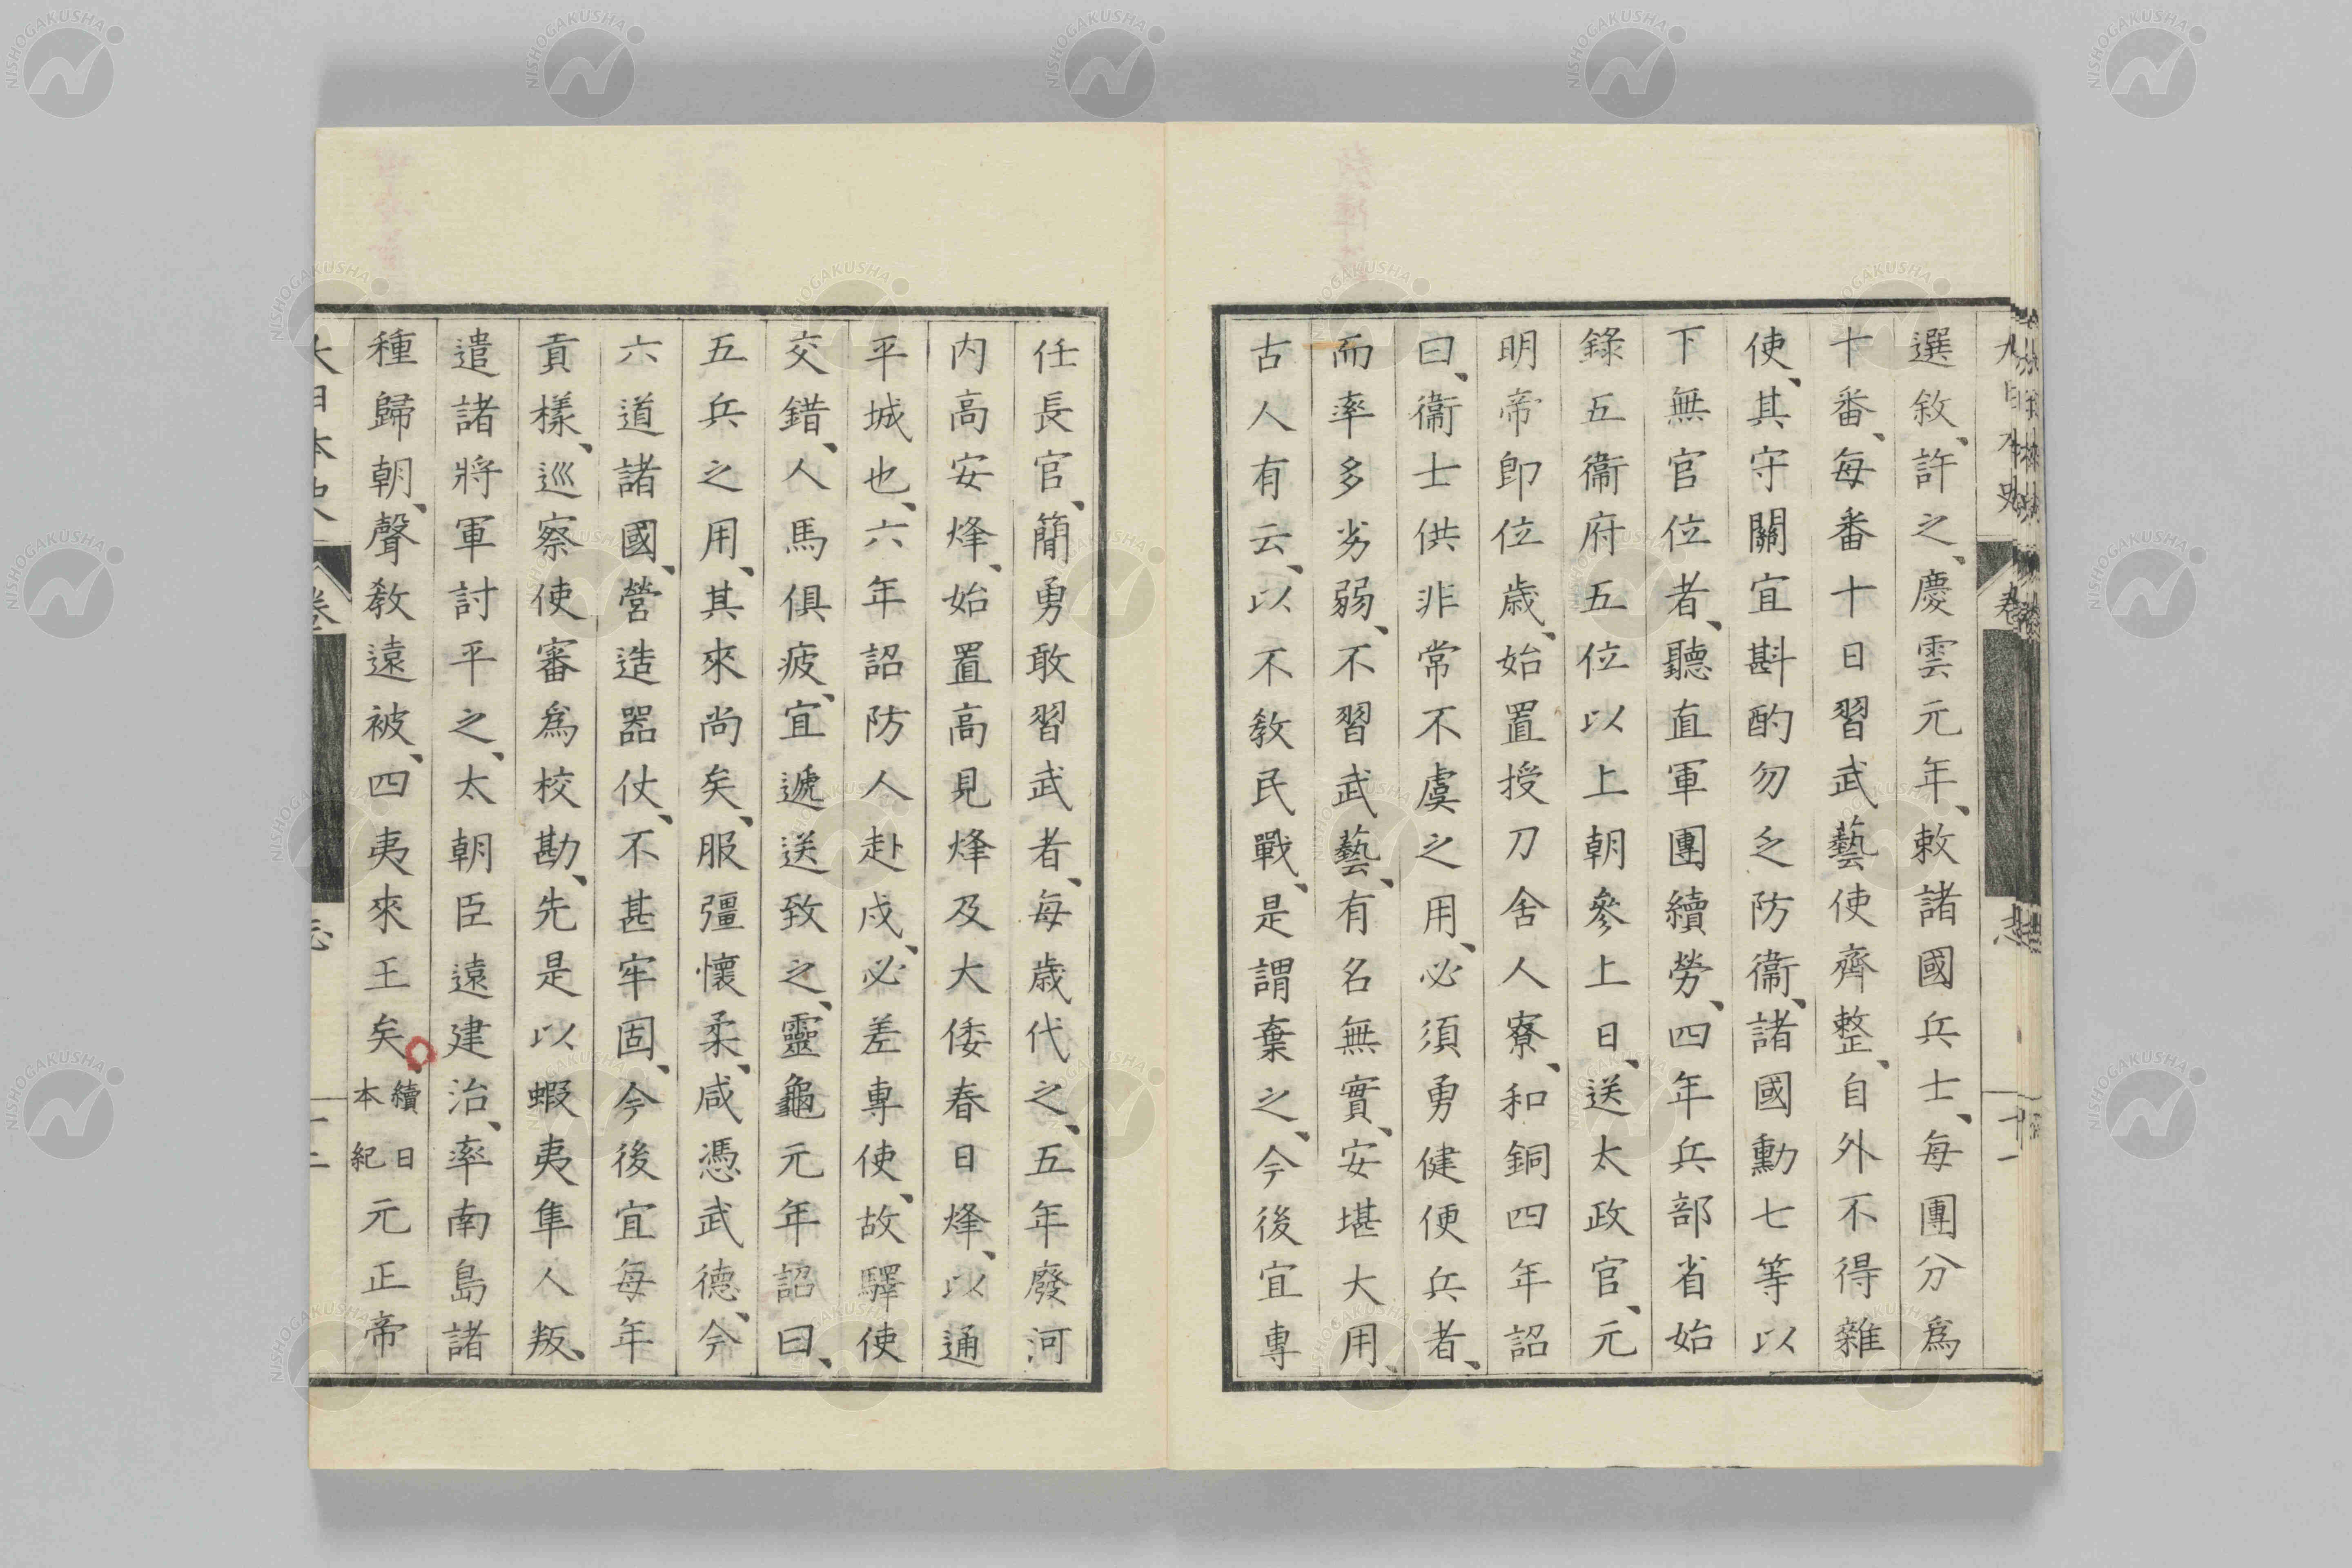 大日本史 卷 志 十一
選敘、許之、慶雲元年、敕諸國兵士、每團分爲
十番、每番十日習武藝使齊整、自外不得雜
使、其守關宜斟酌勿乏防衞、諸國勳七等以
下無官位者、聽直軍團續勞、四年兵部省始
錄五衞府五位以上朝參上日、送太政官、元
明帝卽位歲、始置授刀舍人寮、和銅四年詔
曰、衞士供非常不虞之用、必須勇健便兵者、
而率多劣弱、不習武藝、有名無實、安堪大用、
古人有云、以不敎民戰、是謂棄之、今後宜專
任長官、簡勇敢習武者、每歲代之、五年廢河
内高安烽、始置高見烽及大倭春日烽、以通
平城也、六年詔防人赴戍、必差專使、故驛使
交錯、人馬俱疲、宜遞送致之、靈龜元年詔曰、
五兵之用、其來尚矣、服彊懷柔、咸憑武德、今
六道諸國、營造器仗、不甚牢固、今後宜每年
貢樣、巡察使審爲校勘、先是以蝦夷隼人叛、
遣諸將軍討平之、太朝臣遠建治、率南島諸
種歸朝、聲敎遠被、四夷來王矣、續日本紀元正帝
大日本史 卷 志
NISHOGAKUSHA